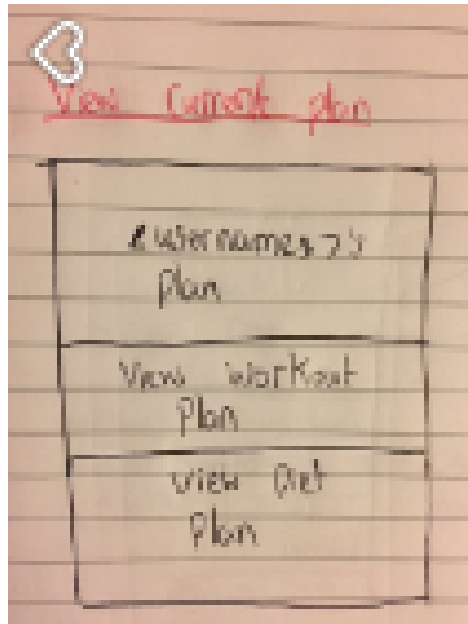 View Current plan
<usernames>'s
Plan
View Workout
Plan
View Diet
Plan